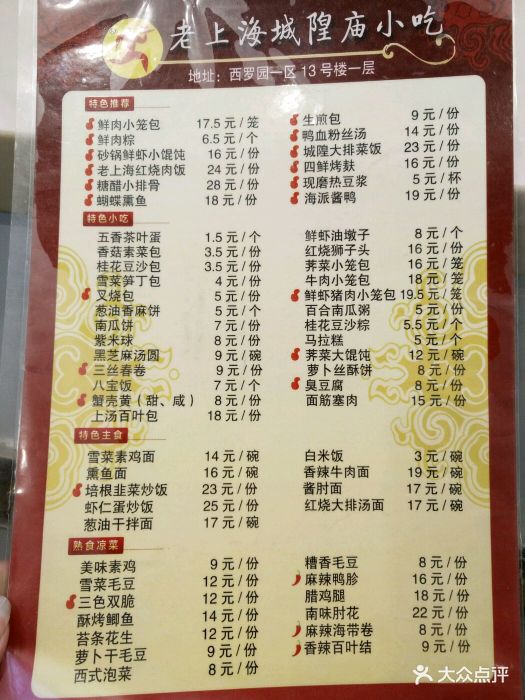 老上海城隍庙小吃
地址：西罗园一区13号楼一层
特色推荐
鲜肉小笼包 17.5元/笼
鲜肉粽 6.5元/个
砂锅鲜虾小馄饨 16元/份
老上海红烧肉饭 24元/份
糖醋小排骨 28元/份
蝴蝶熏鱼 18元/份
生煎包 9元/份
鸭血粉丝汤 14元/份
城隍大排菜饭 23元/份
四鲜烤麸 16元/份
现磨热豆浆 5元/杯
海派酱鸭 19元/份
特色小吃
五香茶叶蛋 1.5元/个
香菇素菜包 3.5元/份
桂花豆沙包 3.5元/份
雪菜笋丁包 4元/份
叉烧包 5元/份
葱油香麻饼 5元/份
南瓜饼 7元/份
紫米球 8元/份
黑芝麻汤圆 9元/碗
三丝春卷 9元/份
八宝饭 7元/个
蟹壳黄（甜、咸） 8元/份
上汤百叶包 18元/份
鲜虾油墩子 8元/个
红烧狮子头 16元/份
荠菜小笼包 16元/笼
牛肉小笼包 18元/笼
鲜虾猪肉小笼包 19.5元/笼
百合南瓜粥 5元/份
桂花豆沙粽 5.5元/个
马拉糕 5元/个
荠菜大馄饨 12元/碗
萝卜丝酥饼 8元/份
臭豆腐 8元/份
面筋塞肉 15元/份
特色主食
雪菜素鸡面 14元/碗
熏鱼面 16元/碗
培根韭菜炒饭 23元/份
虾仁蛋炒饭 25元/份
葱油干拌面 17元/碗
白米饭 3元/碗
香辣牛肉面 19元/碗
酱肘面 17元/碗
红烧大排汤面 17元/碗
熟食凉菜
美味素鸡 9元/份
雪菜毛豆 12元/份
三色双脆 12元/份
酥烤鲫鱼 14元/份
苔条花生 12元/份
萝卜干毛豆 9元/份
西式泡菜 8元/份
糟香毛豆 8元/份
麻辣鸭胗 16元/份
腊鸡腿 18元/份
南味肘花 22元/份
麻辣海带卷 8元/份
香辣百叶结 9元/份
大众点评